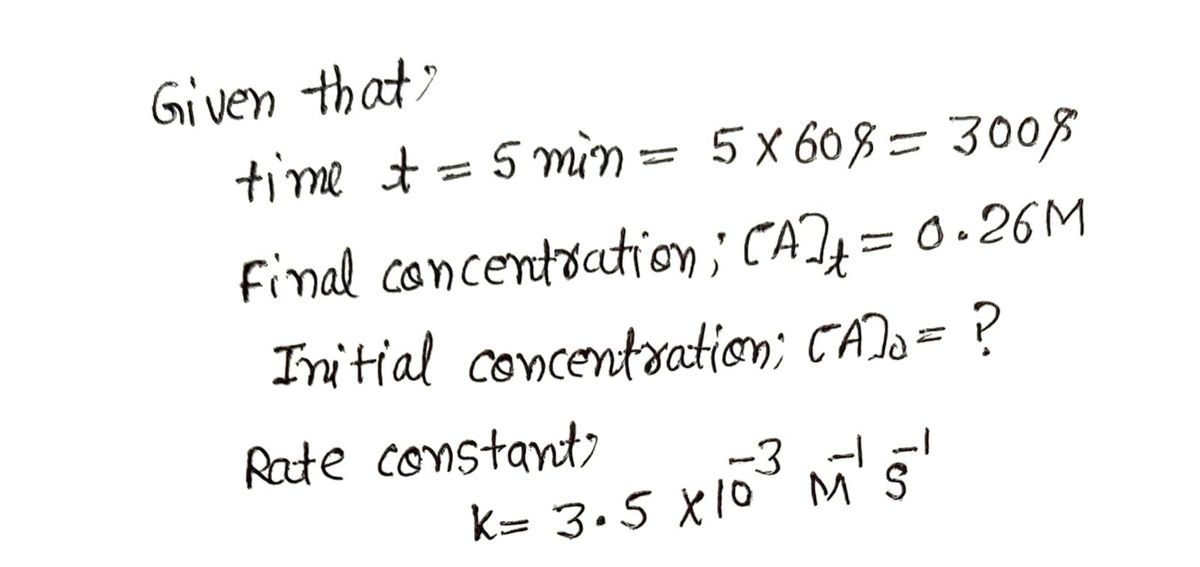 Given that,
time t = 5 min = 5 × 60 s = 300 s
Final concentration; [A]ₜ = 0.26 M
Initial concentration; [A]₀ = ?
Rate constant,
k = 3.5 × 10⁻³ M⁻¹ S⁻¹